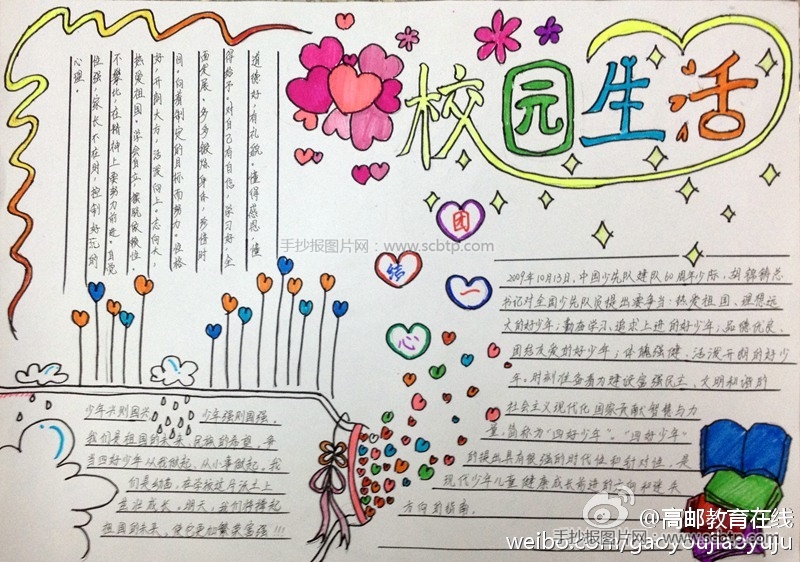 校园生活
道德好，有礼貌，懂得感恩，懂
得给予。对自己有自信，学习好，全
面发展，多多锻炼身体，珍惜时
间，向着制定的目标而努力。性格
好，开朗大方，活泼向上。志向大，
热爱祖国。学会自立，摆脱依赖性。
不攀比，在精神上要努力前进。自觉
性强，家长不在时，控制好玩的
心理。
团
结
一
心
手抄报图片网：www.scbtp.com
2009年10月13日，中国少先队建队60周年少际，胡锦涛总
书记对全国少先队员提出要争当：热爱祖国、理想远
大的好少年；勤奋学习、追求上进的好少年；品德优良、
团结友爱的好少年；体魄强健、活泼开朗的好少
年。时刻准备着为建设富强民主、文明和谐的
社会主义现代化国家贡献智慧与力
量，简称为“四好少年”。“四好少年”
的提出具有极强的时代性和针对性，是
现代少年儿童健康成长前进的方向和追求
方向的指南。
少年兴则国兴 少年强则国强，
我们是祖国的未来、民族的希望，争
当四好少年从我做起、从小事做起。我
们是幼苗，在学校这片沃土上
茁壮成长。明天，我们将撑起
祖国的未来，使它更加繁荣富强!!!
@高邮教育在线
手抄报图片网：www.scbtp.com
weibo.com/gaoyoujiaoyuju